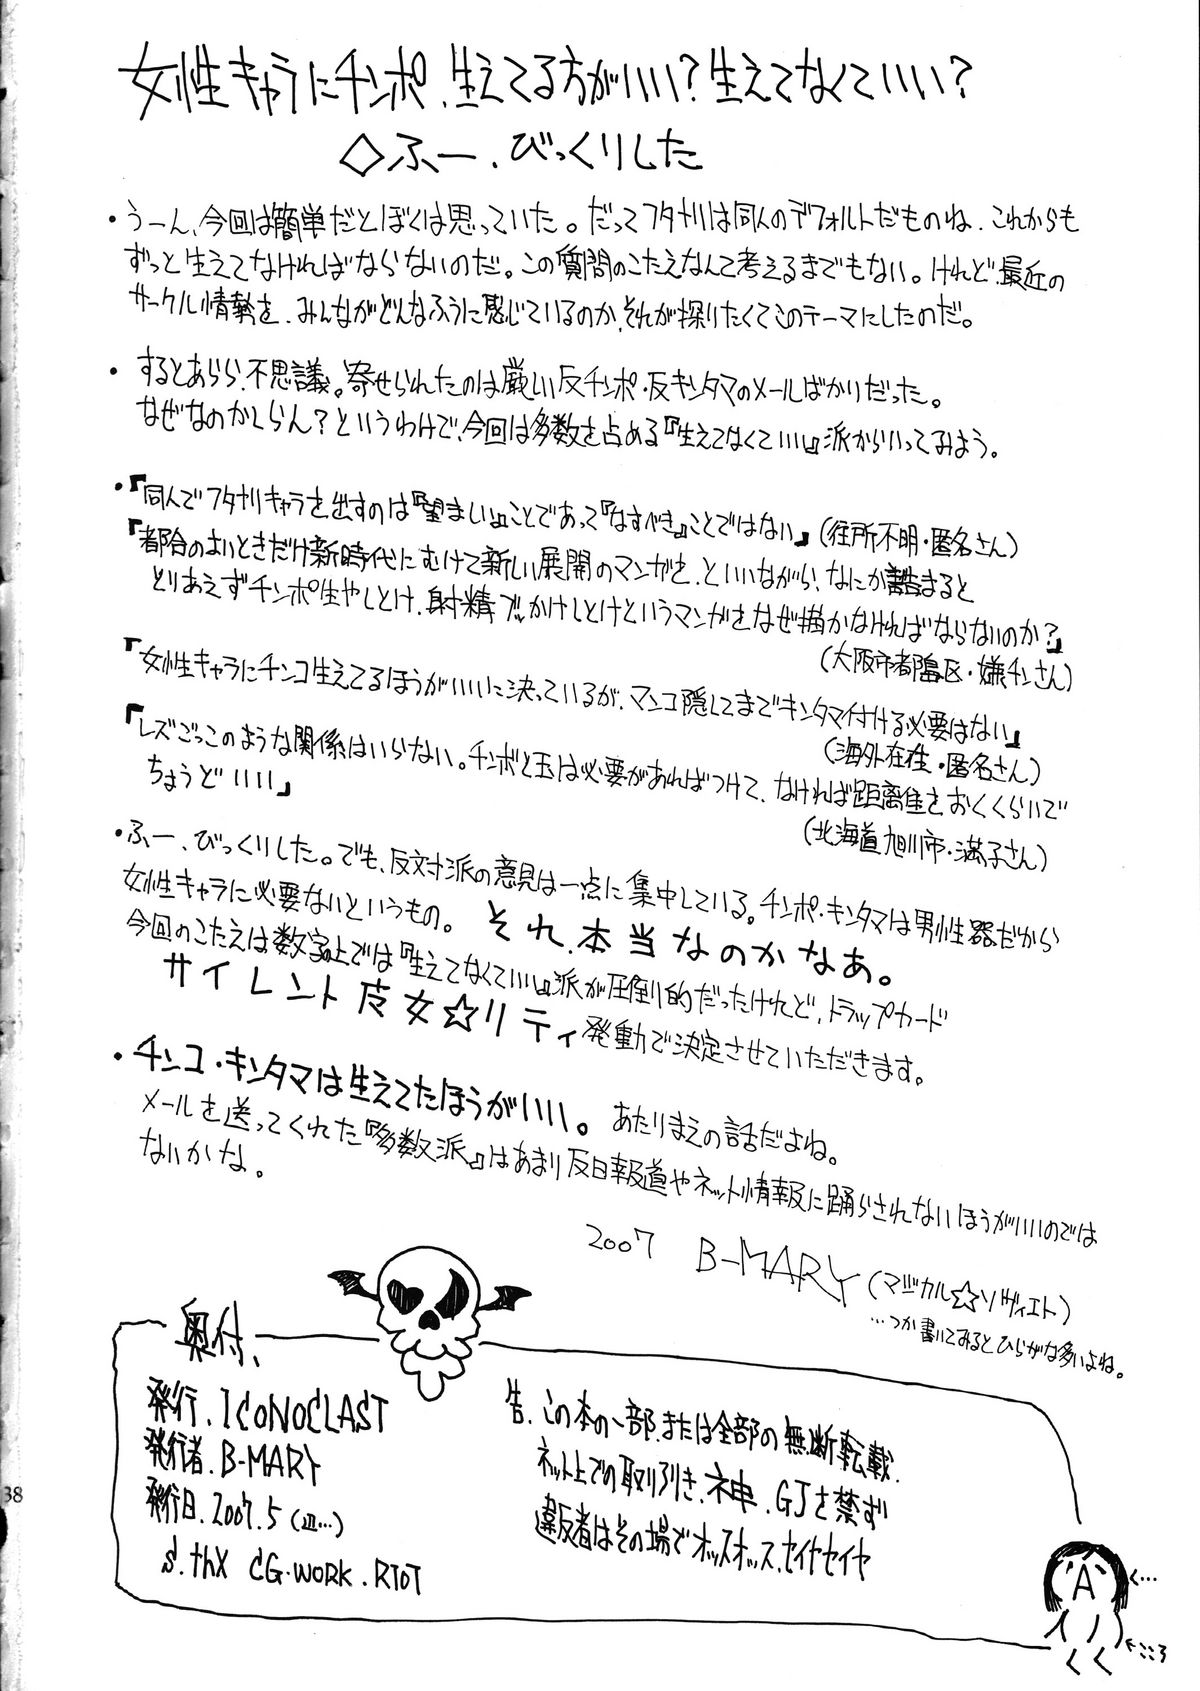 女性キャラにチンポ、生えてる方がいい?生えてなくていい?
◇ふー、びっくりした
・うーん、今回は簡単だとぼくは思っていた。だってフタナリは同人のデフォルトだものね、これからも
ずっと生えてなければならないのだ。この質問のこたえなんて考えるまでもない。けれど、最近の
サークル情勢を、みんながどんなふうに感じているのか、それが探りたくてこのテーマにしたのだ。
・するとあらら、不思議。寄せられたのは厳しい反チンポ・反キンタマのメールばかりだった。
なぜなのかしらん?というわけで、今回は多数を占める『生えてなくていい』派からいってみよう。
・『同人でフタナリキャラを出すのは『望ましい』ことであって『なすべき』ことではない』(住所不明・匿名さん)
『都合のよいときだけ新時代にむけて新しい展開のマンガを、といいながら、なにか詰まると
とりあえずチンポ生やしとけ、射精でぶっかけしとけというマンガをなぜ描かなければならないのか?』
(大阪市都島区・嫌チンさん)
『女性キャラにチンコ生えてるほうがいいに決っているが、マンコ隠してまでキンタマ付ける必要はない』
(海外在住・匿名さん)
『レズごっこのような関係はいらない。チンポと玉は必要があればつけて、なければ距離をおくくらいで
ちょうどいい』
(北海道旭川市・満子さん)
・ふー、びっくりした。でも、反対派の意見は一点に集中している。チンポ・キンタマは男性器だから
女性キャラに必要ないというもの。それ、本当なのかなあ。
今回のこたえは数字上では『生えてなくていい』派が圧倒的だったけれど、トラップカード
サイレント魔女☆リティ発動で決定させていただきます。
・チンコ・キンタマは生えてたほうがいい。あたりまえの話だよね。
メールを送ってくれた『多数派』はあまり反日報道やネット情報に踊らされないほうがいいのでは
ないかな。
2007 B-MARY(マジカル☆ソヴィエト)
…つか書いてみるとひらがな多いよね。
奥付、
発行.ICONOCLAST
発行者.B-MARY
発行日.2007.5(皿…)
S.thX CG-WORK.RIOT
告、この本の一部、または全部の無断転載、
ネット上での取り引き、ネ申、GJを禁ず
違反者はその場でオッスオッス、セイヤセイヤ
く…
←こころ
38